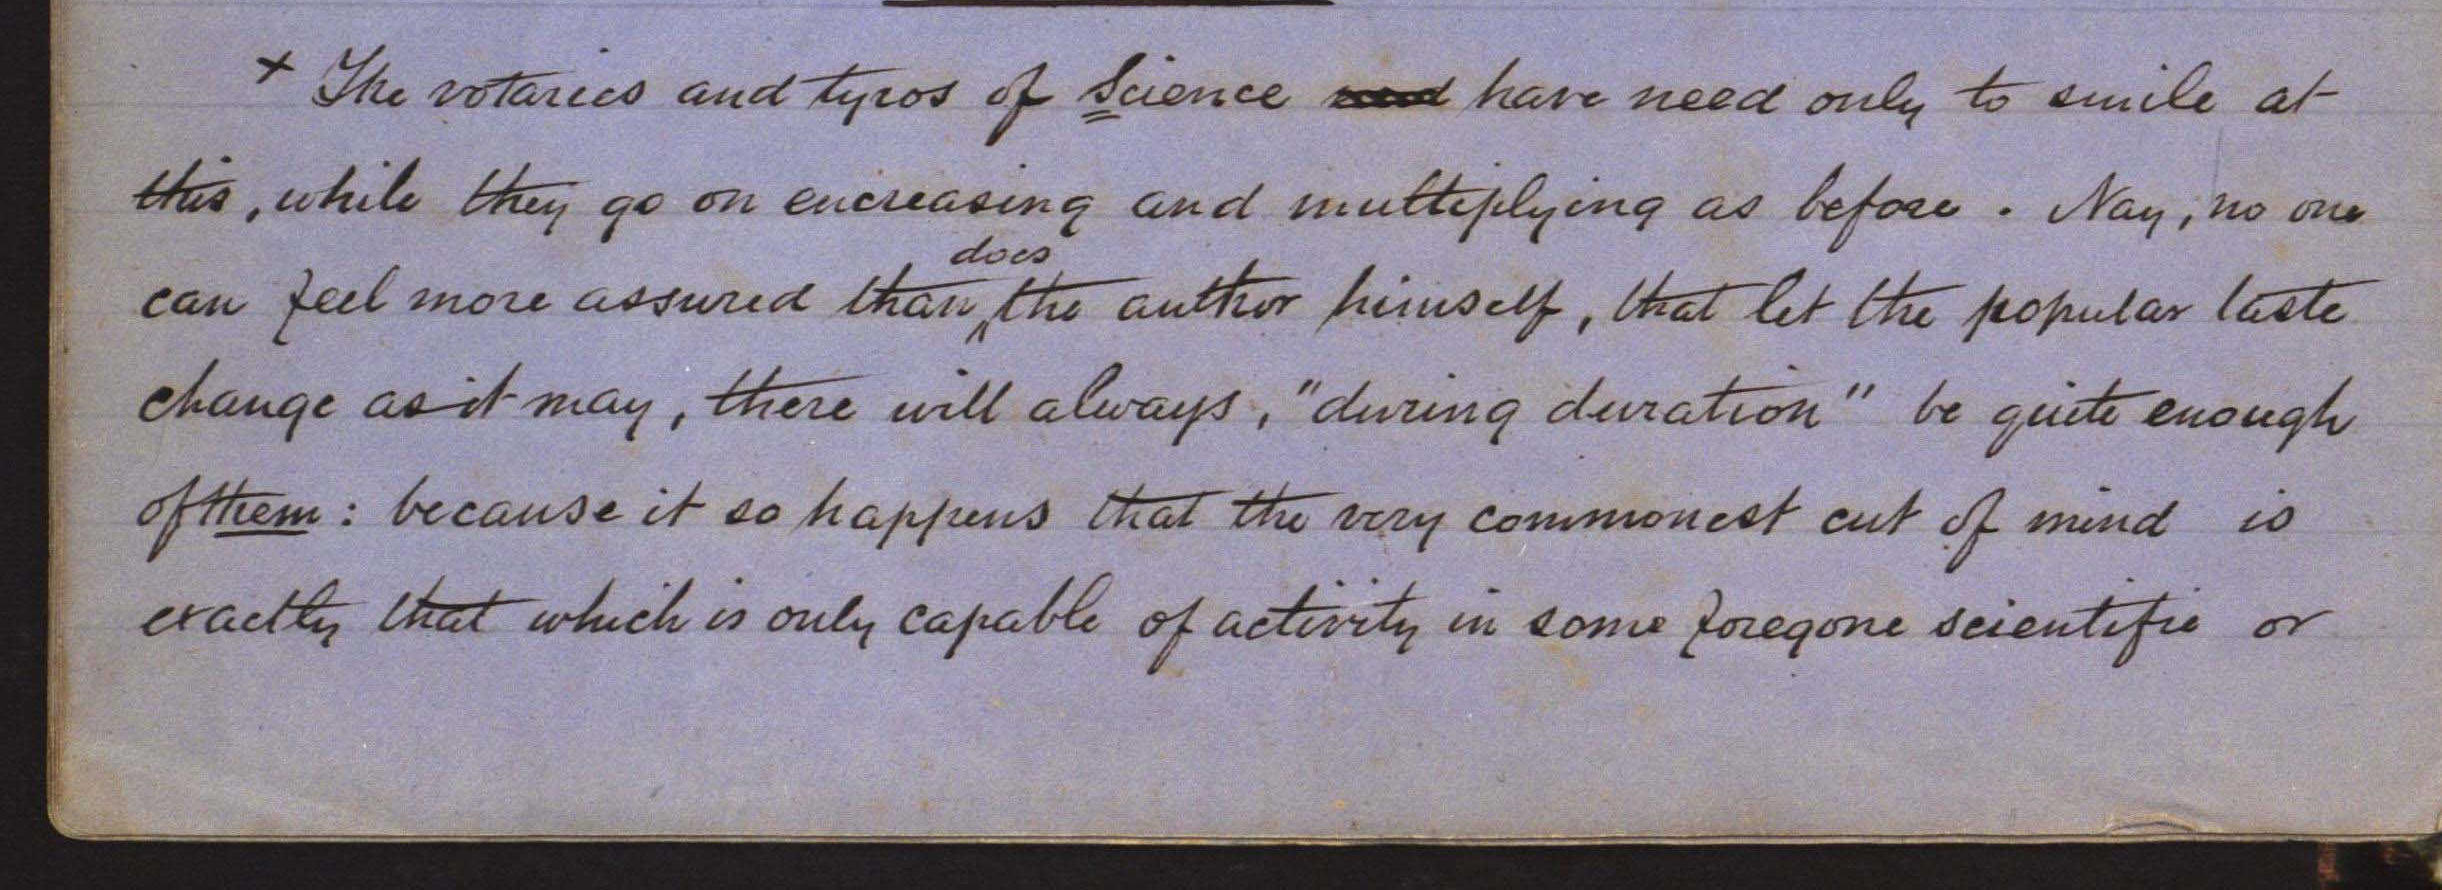 + The votaries and tyros of Science have need only to smile at
this, while they go on encreasing and multiplying as before. Nay, no one
does
can feel more assured than ‸ the author himself, that let the popular taste
change as it may, there will always, "during duration" be quite enough
of them: because it so happens that the very commonest cut of mind is
exactly that which is only capable of activity in some foregone scientific or